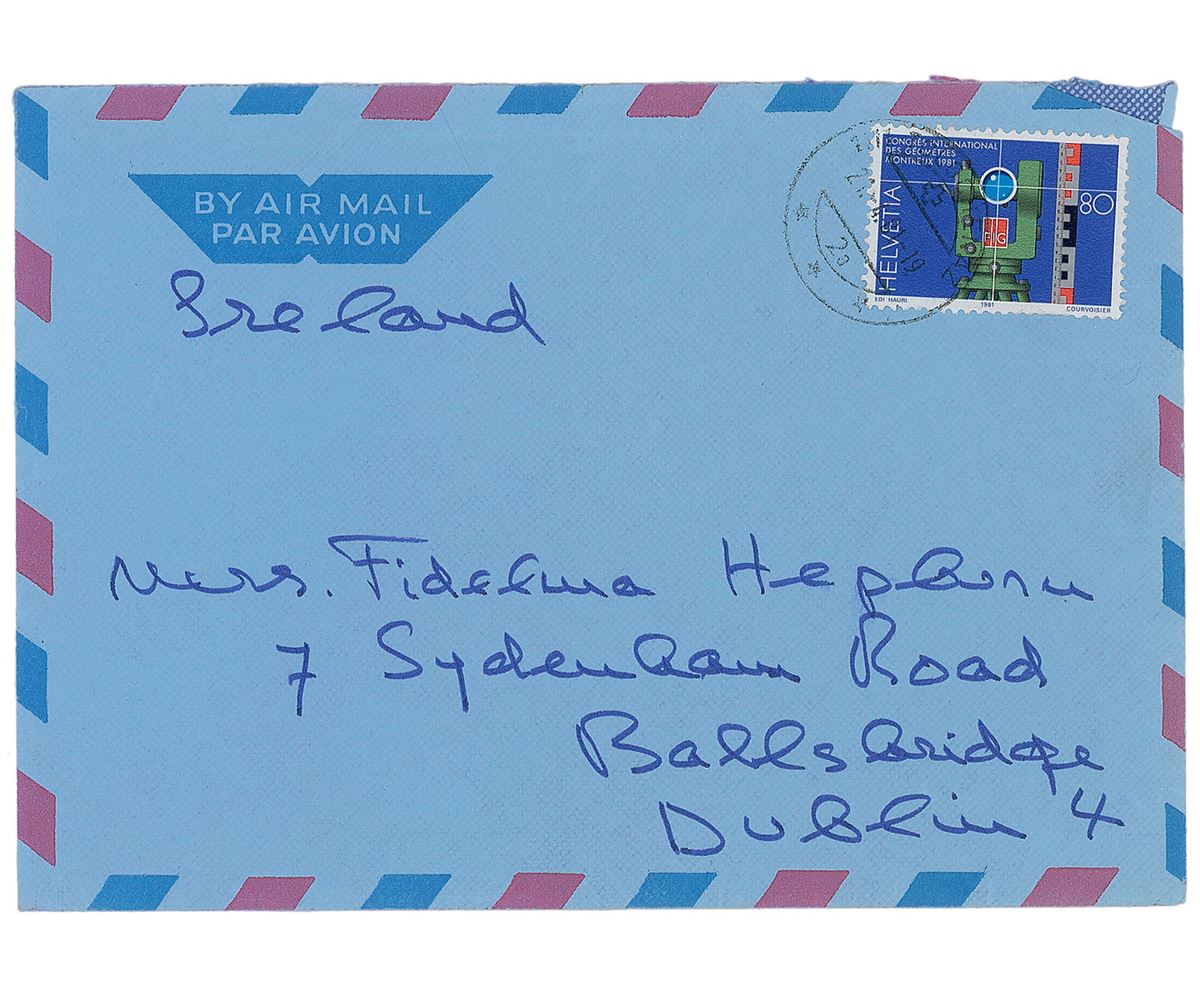 BY AIR MAIL
PAR AVION
Ireland
CONGRÈS INTERNATIONAL
DES GÉOMÈTRES
MONTREUX 1981
HELVETIA
80
FIG
EDI HAURI
1981
COURVOISIER
Mrs. Fidelma Hepburn
7 Sydenham Road
Ballsbridge
Dublin 4